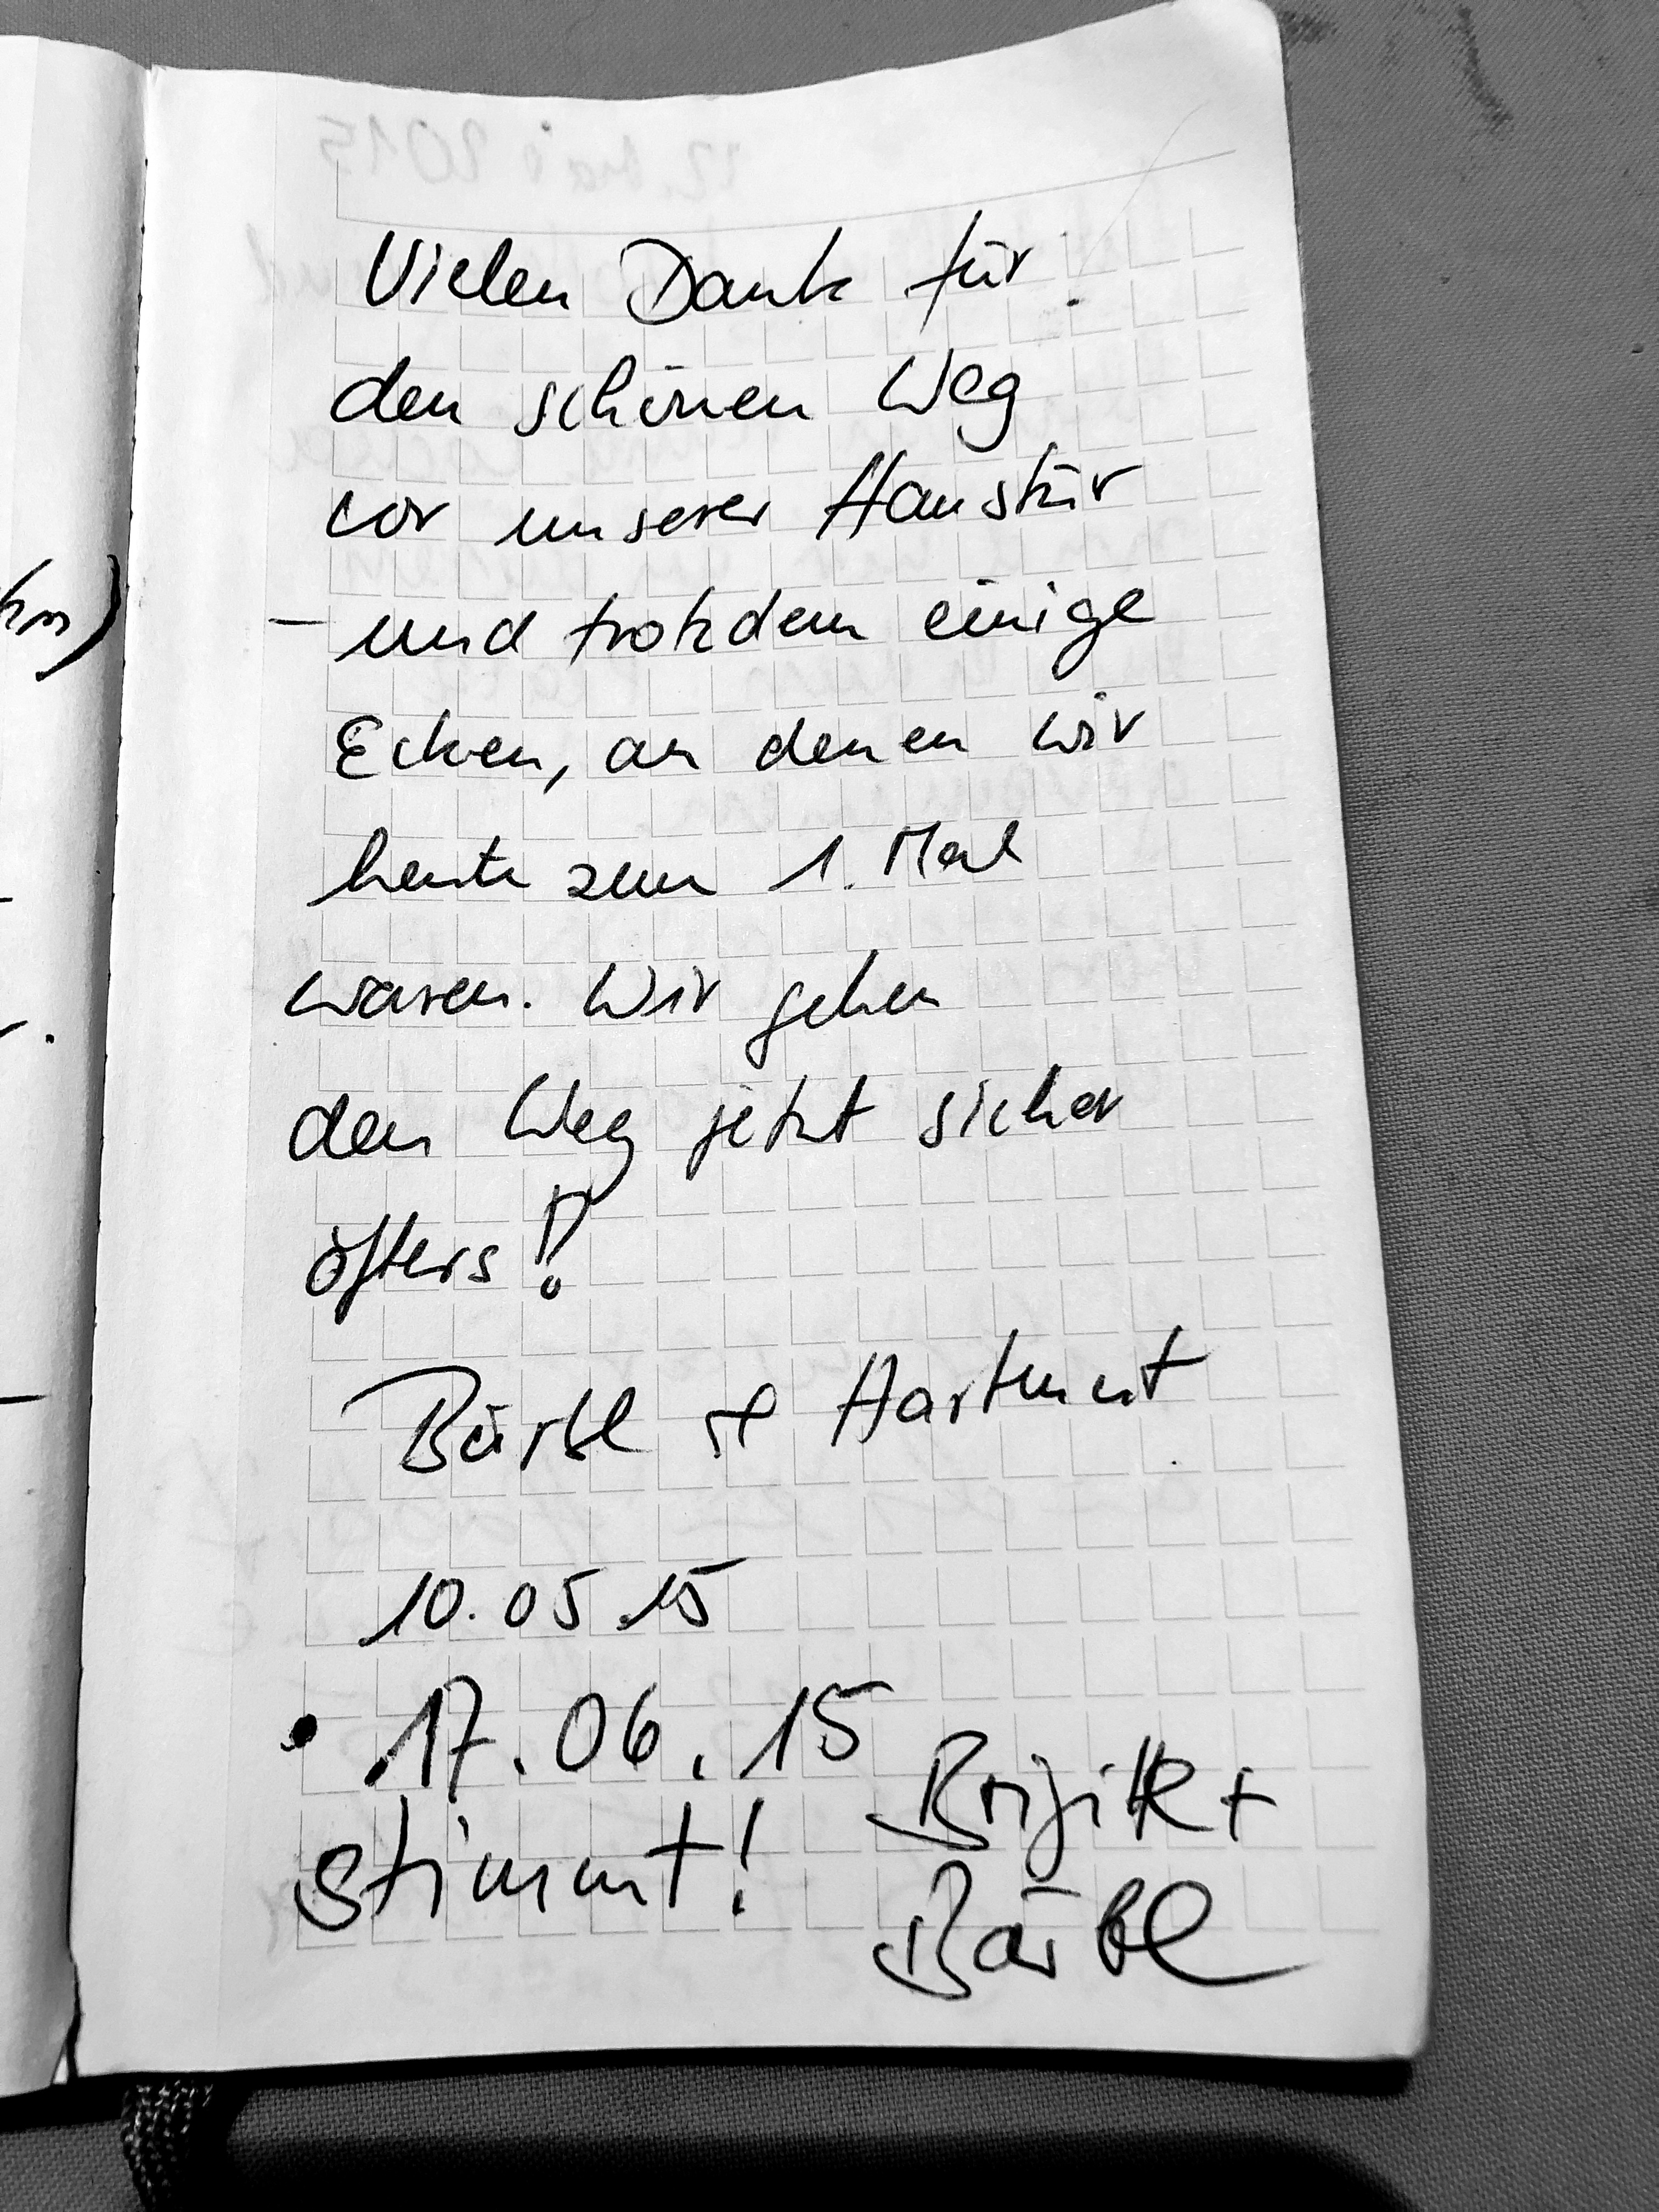 Vielen Dank für
den schönen Weg
vor unserer Haustür
– und trotzdem einige
Ecken, an denen wir
heute zum 1. Mal
waren. Wir gehen
den Weg jetzt sicher
öfters!
Bärbel + Hartmut
10.05.15
• 17.06.15
stimmt!
Brigitte +
Bärbel